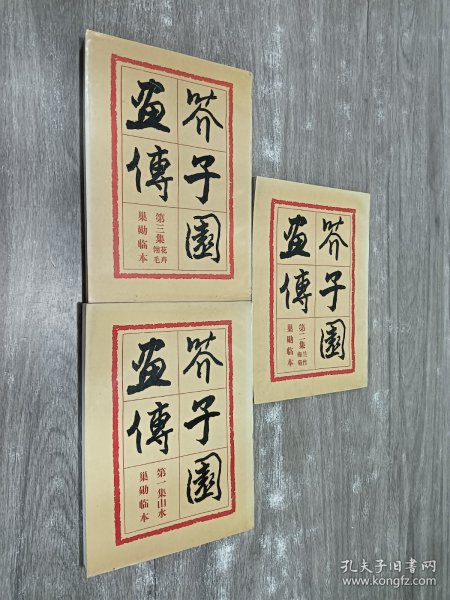 芥子園
畫傳
第三集花卉翎毛
巢勋临本
芥子園
畫傳
第二集兰竹梅菊
巢勋临本
芥子園
畫傳
第一集山水
巢勋临本
孔夫子旧书网
www.kongfz.com